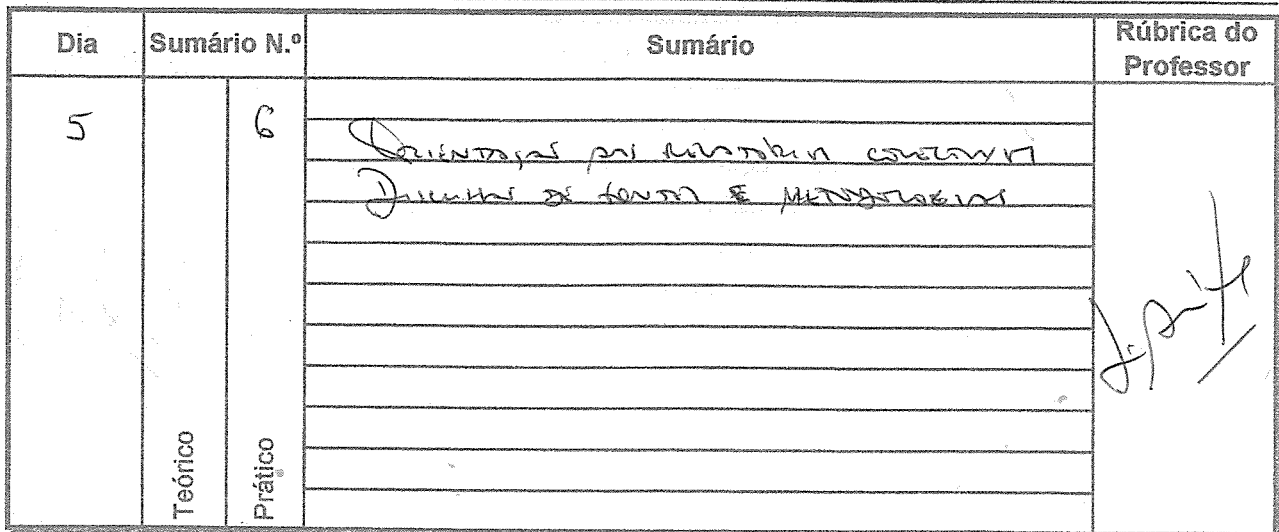 Dia Sumário N.º Sumário Rúbrica do Professor
5 6
Orientações dos relatórios
Discussão de fontes e metodologias
Teórico Prático